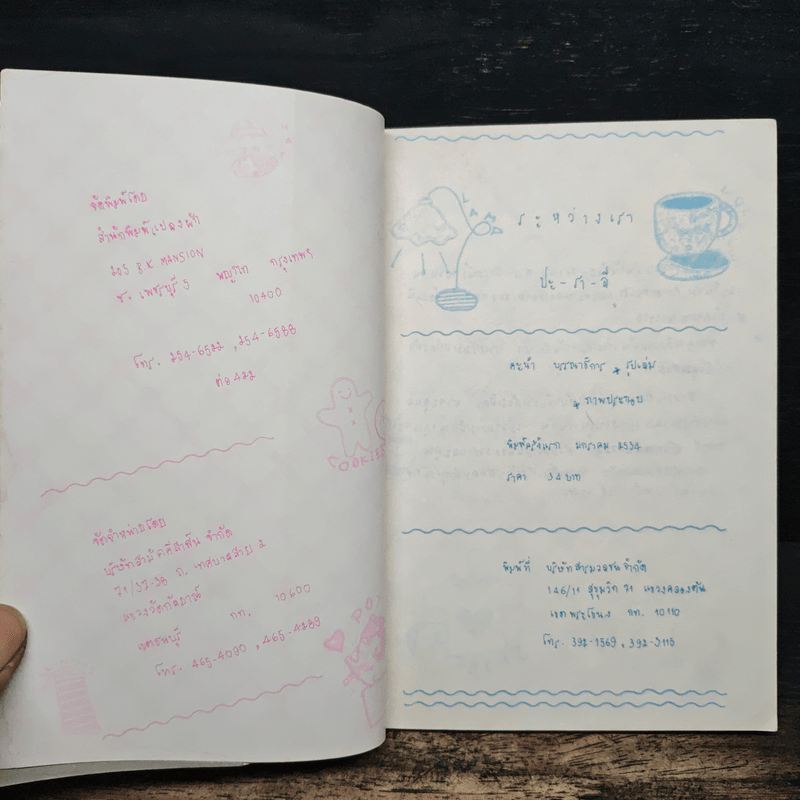 จัดพิมพ์โดย
สำนักพิมพ์แปลงผัก
205 B.K MANSION
ซ. เพชรบุรี 5 พญาไท กรุงเทพฯ
10400
โทร. 254-6522 , 254-6588
ต่อ 422
COOKIES
จัดจำหน่ายโดย
บริษัทสามัคคีสาส์น จำกัด
71/37-38 ถ. เทศบาลสาย 2
แขวงวัดกัลยาณ์
เขตธนบุรี กท. 10600
โทร. 465-4090 , 465-4289
ระหว่างเรา
ปะ-รา-ลี
คะนำ บรรณาธิการ รูปเล่ม
ภาพประกอบ
พิมพ์ครั้งแรก มกราคม 2534
ราคา 34 บาท
พิมพ์ที่ บริษัทสารมวลชน จำกัด
146/11 สุขุมวิท 71 แขวงคลองตัน
เขตพระโขนง กท. 10110
โทร. 392-1569, 392-3115